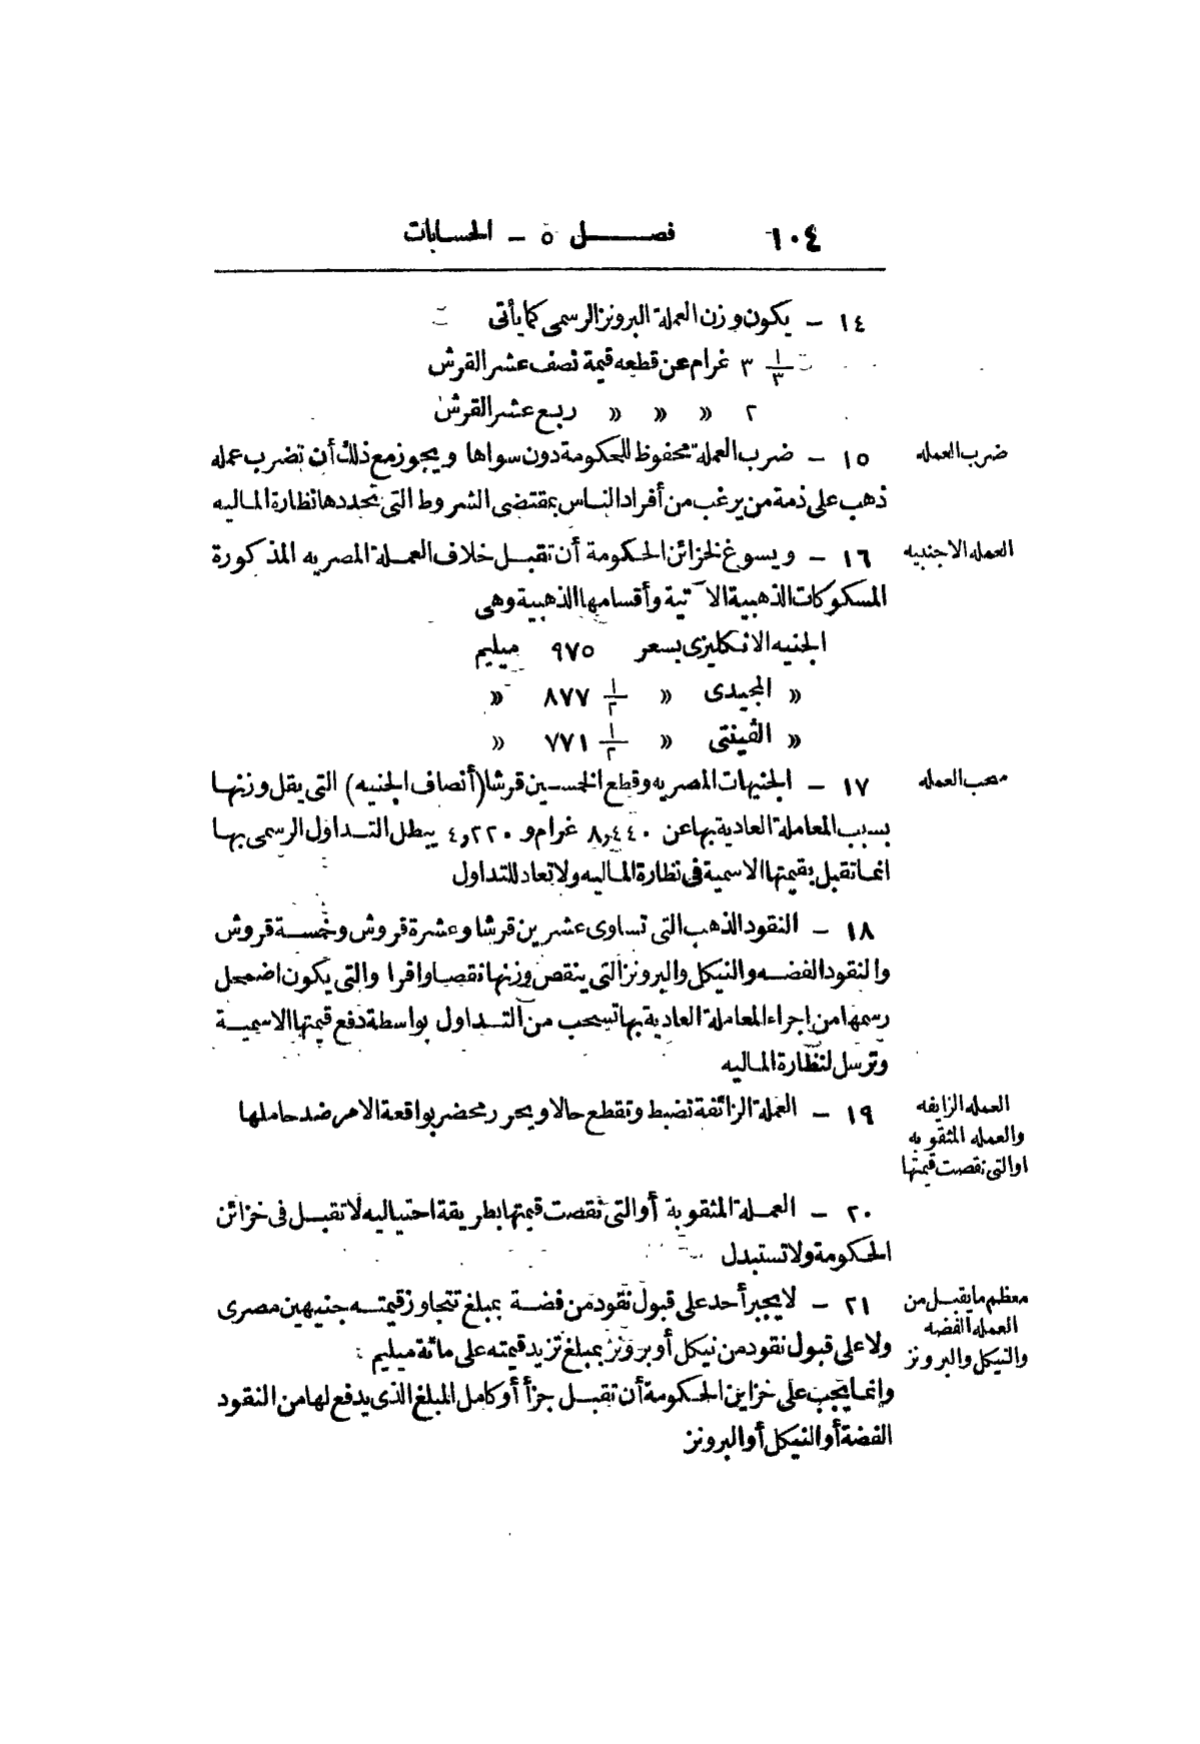 ١٠٤ فصل ٥ – الحسابات
١٤ – يكون وزن العملة البرونز الرسمى كما يأتى
٣ ١/٣ غرام عن قطعه قيمة نصف عشر القرش
٢ » » » ربع عشر القرش
ضرب العمله
١٥ – ضرب العملة محفوظ للحكومة دون سواها ويجوز مع ذلك أن تضرب عمله
ذهب على ذمة من يرغب من أفراد الناس بمقتضى الشروط التى تحددها نظارة الماليه
العمله الاجنبيه
١٦ – ويسوغ لخزائن الحكومة أن تقبل خلاف العملة المصريه المذكورة
المسكوكات الذهبية الآتية وأقسامها الذهبية وهى
الجنيه الانكليزى بسعر ٩٧٥ ميليم
» المجيدى » ٨٧٧ ١/٢ »
» الڤينتى » ٧٧١ ١/٢ »
سحب العمله
١٧ – الجنيهات المصريه وقطع الخمسين قرشا (أنصاف الجنيه) التى يقل وزنها
بسبب المعاملة العادية بها عن ٨,٤٤٠ غرام و ٤,٢٢٠ يبطل التداول الرسمى بها
انما تقبل بقيمتها الاسمية فى نظارة الماليه ولا تعاد للتداول
١٨ – النقود الذهب التى تساوى عشرين قرشا وعشرة قروش وخمسة قروش
والنقود الفضه والنيكل والبرونز التى ينقص وزنها نقصا وافرا والتى يكون اضمحل
رسمها من اجراء المعاملة العادية بها تسحب من التداول بواسطة دفع قيمتها الاسمية
وترسل لنظارة الماليه
العمله الزايفه
والعمله المثقوبه
او التى نقصت قيمتها
١٩ – العملة الزائفة تضبط وتقطع حالا ويحرر محضر بواقعة الامر ضد حاملها
٢٠ – العملة المثقوبة أو التى نقصت قيمتها بطريقة احتياليه لا تقبل فى خزائن
الحكومة ولا تستبدل
معظم ما يقبل من
العمله الفضه
والنيكل والبرونز
٢١ – لا يجبر أحد على قبول نقود من فضة بمبلغ تتجاوز قيمته جنيهين مصرى
ولا على قبول نقود من نيكل أو برونز بمبلغ تزيد قيمته على مائة ميليم :
وانما يجب على خزاين الحكومة أن تقبل جزأ أو كامل المبلغ الذى يدفع لها من النقود
الفضة أو النيكل أو البرونز